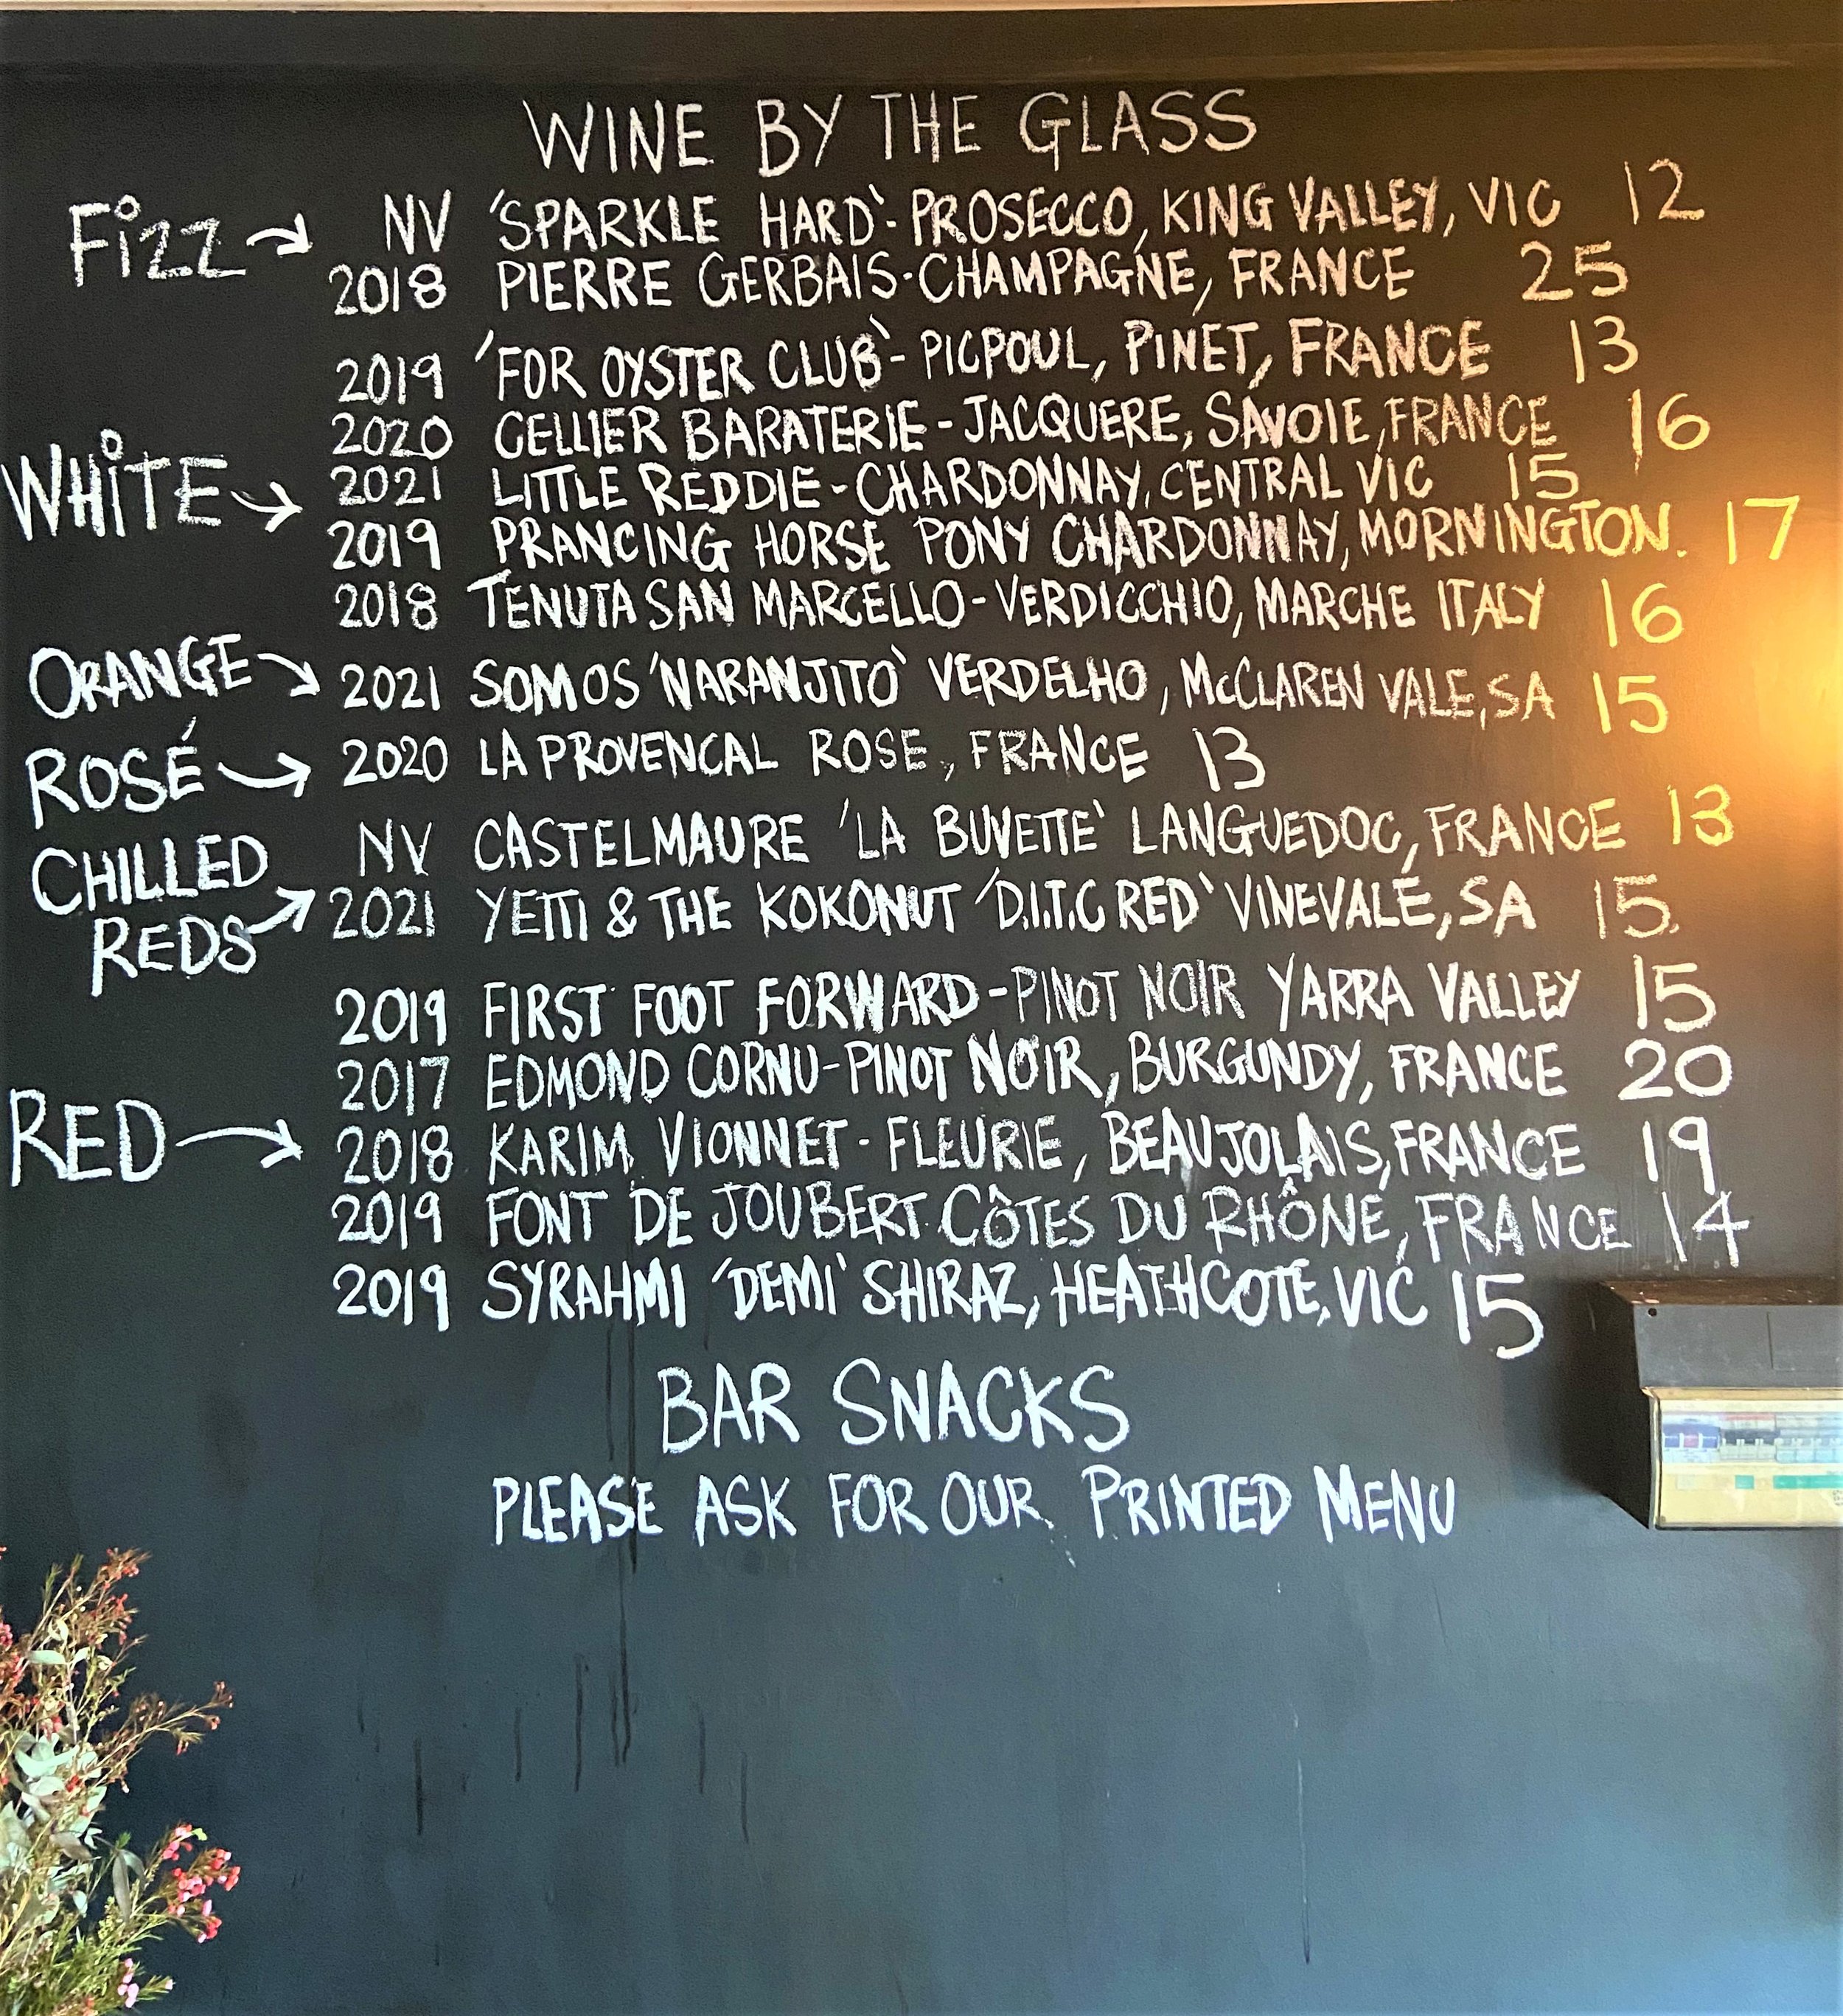 WINE BY THE GLASS
FiZZ → NV 'SPARKLE HARD' - PROSECCO, KING VALLEY, VIC 12
2018 PIERRE GERBAIS - CHAMPAGNE, FRANCE 25
2019 'FOR OYSTER CLUB' - PICPOUL, PINET, FRANCE 13
2020 CELLIER BARATERIE - JACQUERE, SAVOIE, FRANCE 16
WHiTE → 2021 LITTLE REDDIE - CHARDONNAY, CENTRAL VIC 15
2019 PRANCING HORSE PONY CHARDONNAY, MORNINGTON. 17
2018 TENUTA SAN MARCELLO - VERDICCHIO, MARCHE ITALY 16
ORANGE → 2021 SOMOS 'NARANJITO' VERDELHO, McCLAREN VALE, SA 15
ROSÉ → 2020 LA PROVENCAL ROSE, FRANCE 13
CHILLED NV CASTELMAURE 'LA BUVETTE' LANGUEDOC, FRANCE 13
REDS → 2021 YETTI & THE KOKONUT 'D.I.T.C RED' VINEVALE, SA 15.
2019 FIRST FOOT FORWARD - PINOT NOIR YARRA VALLEY 15
2017 EDMOND CORNU - PINOT NOIR, BURGUNDY, FRANCE 20
RED → 2018 KARIM VIONNET - FLEURIE, BEAUJOLAIS, FRANCE 19
2019 FONT DE JOUBERT CÔTES DU RHÔNE, FRANCE 14
2019 SYRAHMI 'DEMI' SHIRAZ, HEATHCOTE, VIC 15
BAR SNACKS
PLEASE ASK FOR OUR PRINTED MENU